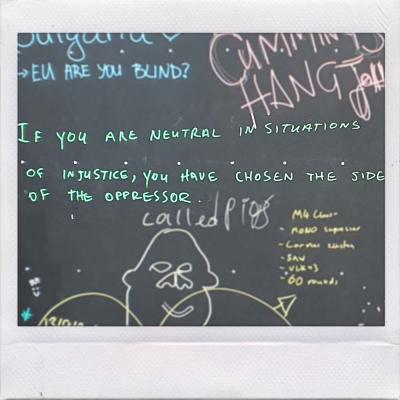 Bulgaria
→EU ARE YOU BLIND?
CUMMINGS
HANG
IF YOU ARE NEUTRAL IN SITUATIONS
OF INJUSTICE, YOU HAVE CHOSEN THE SIDE
OF THE OPPRESSOR.
called pigs
M4
- MONO
- SAW
- 60 rounds